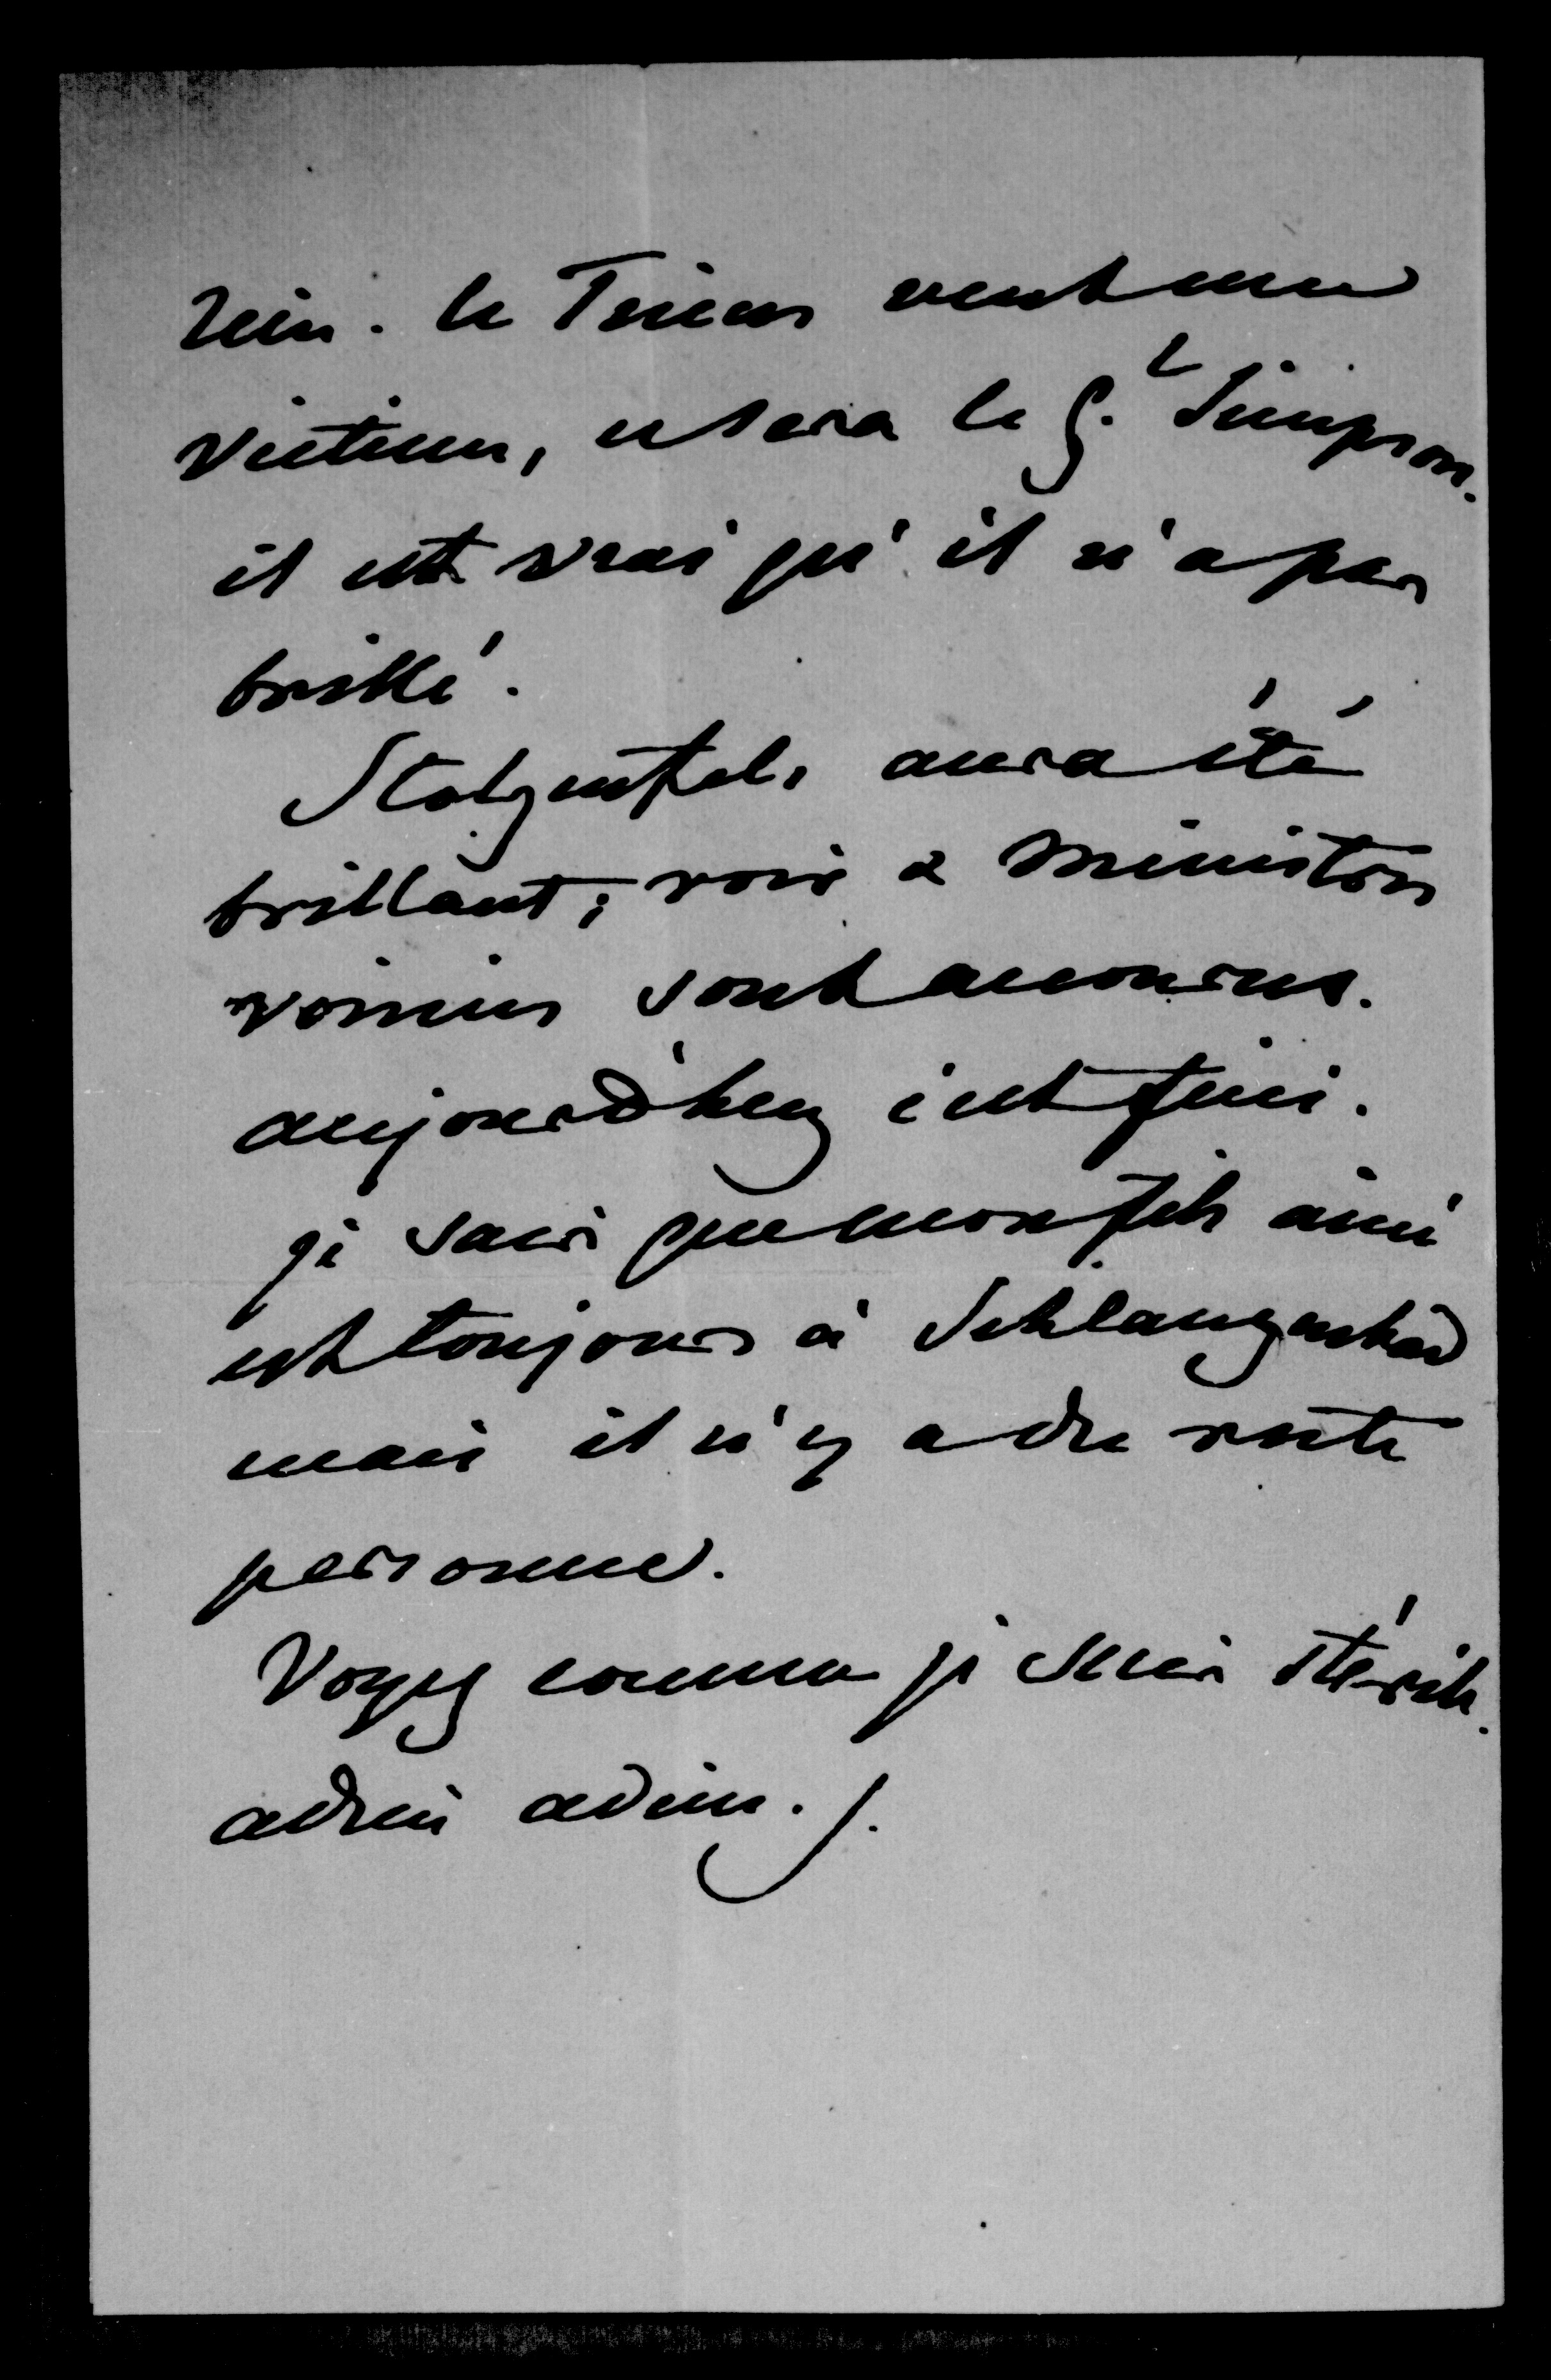 rien. le Times veut une
victime, ce sera le G.l Simpson.
il est vrai qu'il n'a pas
brillé.
Stolzenfels aura été
brillant; rois & ministres
voisins sont accourus.
aujourd'huy c'est fini.
je sais que mon fils ainé
est toujours à Schlangenbad
mais il n'y a de reste
personne.
Voyez comme je suis stérile.
adieu adieu.